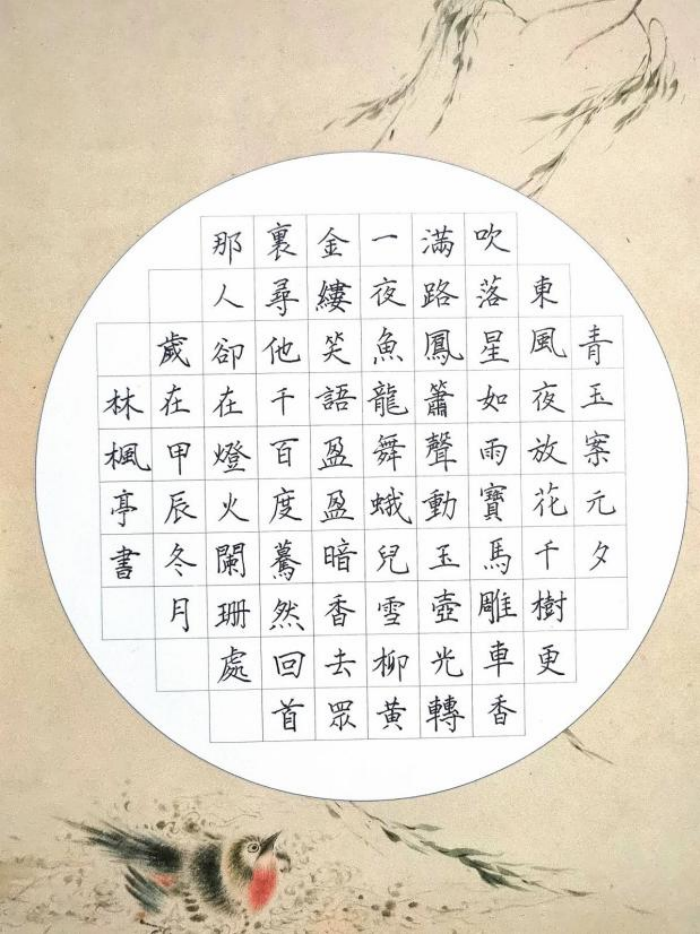 青玉案元夕
東風夜放花千樹更
吹落星如雨寶馬雕車香
滿路鳳簫聲動玉壺光轉
一夜魚龍舞蛾兒雪柳黃
金縷笑語盈盈暗香去眾
裏尋他千百度驀然回首
那人卻在燈火闌珊處
歲在甲辰冬月
林楓亭書